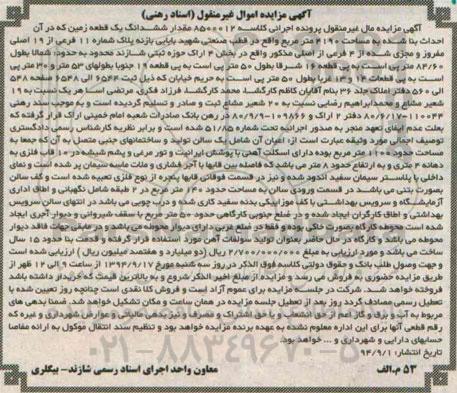 آگهی مزایده اموال غیرمنقول (اسناد رهنی)
آگهی مزایده مال غیرمنقول پرونده اجرائی کلاسه ۸۵۰۰۰۱۲ مقدار ششدانگ یک قطعه زمین که در آن
احداث بنا شده به مساحت ۲۱۹۰ متر مربع واقع در قطب صنعتی شهید بابایی بازنه پلاک شماره ۱۱ فرعی از ۱۹ اصلی
مفروز و مجزی شده از ۴ فرعی از مذکور واقع در بخش ۴ اراک حوزه ثبتی شازند محدود به حدود: شمالا بطول
۸۴/۶۰ متر پی است به پی قطعه ۱۶ شرقا بطول ۵۰ متر پی است به پی قطعه ۱۹ جنوبا بطولهای ۵۳ متر و ۳۰ متر پی
است به پی قطعات ۱۴ و ۱۳ غربا بطول ۵۰ متر پی است به حریم خیابان که ذیل ثبت ۶۵۴۴ الی ۶۵۴۸ صفحه ۵۴۸
الی ۵۶۰ دفتر املاک جلد ۳۶ بنام آقایان کاظم کارگشا، محمد کارگشا، فرزاد فکری، مرتضی اسا هر یک نسبت به ۱۹
شعیر مشاع و محمدابراهیم رضایی نسبت به ۲۰ شعیر مشاع ثبت و صادر و تسلیم گردیده است و به موجب سند رهنی
۱۱۰۰۴۴-۸۰/۶/۱۱ دفتر ۲ اراک و ۱۰۹۸۶۶-۸۰/۹/۹ در رهن بانک صادرات شعبه امام خمینی اراک قرار گرفته که
بعلت عدم ایفای تعهد منجر به صدور اجرائیه تحت شماره ۵۱/۸۵ شده است و برابر نظریه کارشناس رسمی دادگستری
توصیف اجمالی مورد وثیقه عبارت است از: اعیان آن شامل یک سالن تولید و ساختمانهای جنبی متصل به آن که جمعا به
مساحت حدود ۱۲۰۰ متر مربع بوده دارای اسکلت آهنی با پوشش ایرانیت و تور مرغی و پشم شیشه در ۱۰ قاب فلزی به
دهانه ۲ متری و به ارتفاع حدود ۸ متر می باشد که فاصله بین قابها با آجر فشاری و ملات ماسه سیمان پر شده است و نمای
داخلی با پلاستر سیمان سفید اندود شده و نیز در قسمت فوقانی قابها پنجره از نوع فلزی تعبیه شده است و کف سالن
بصورت بتنی می باشد در قسمت ورودی سالن به مساحت حدود ۱۴۰ متر مربع در ۲ طبقه شامل نگهبانی و اطاق اداری
آزمایشگاه و سرویس بهداشتی با کف موزائیکی بدنه سفید کاری شده و درب چوبی می باشد در انتهای سالن سرویس
بهداشتی و اطاق کارگران ایجاد شده و در ضلع جنوبی کارگاهی حدود ۵۰ متر مربع با سقف شیروانی و دیوار آجری ایجاد
شده است محوطه کارگاه بصورت خاکی بوده و فقط در ضلع غربی دارای دیوار محوطه می باشد و در مابقی جهات فاقد دیوار
محوطه می باشد و کارگاه در حال حاضر بعنوان تولید سولفات آهن مورد استفاده قرار گرفته و قدمت بنا حدود ۱۵ سال
ساخت می باشد و مورد ارزیابی به مبلغ ۲/۷۰۰/۰۰۰/۰۰۰ ریال (دو میلیارد و هفتصد میلیون ریال) ارزیابی شده است
و جهت وصول طلب بانک و حقوق دولتی کلاسه فوق الذکر در روز سه شنبه مورخ ۱۳۹۴/۹/۱۷ از ساعت ۹ الی ۱۲ ظهر از
طریق مزایده حضوری به فروش می رسد و مزایده از مبلغ اخیر الذکر شروع و به بالاترین قیمت که خریدار داشته باشد
فروخته خواهد شد. شرکت در جلسه مزایده برای عموم آزاد است و فروش کلا نقدی است چنانچه روز تعیین شده با
تعطیل رسمی مصادف گردد روز بعد از تعطیل جلسه مزایده در همان ساعت و مکان تشکیل خواهد شد. ضمنا بدهی های
مربوط به آب، برق و گاز اعم از حق انشعاب و یا حق اشتراک و مصرف و نیز بدهی مالیاتی و عوارض شهرداری و غیره که
رقم قطعی آنها برای این اداره معلوم نشده به عهده برنده مزایده خواهد بود و تنظیم سند انتقال موکول به ارائه مفاصا
حسابهای دارایی و شهرداری و ... خواهد بود.
تاریخ انتشار: ۹۴/۹/۱
۵۳ م.الف
معاون واحد اجرای اسناد رسمی شازند- بیگلری
۰۲۱-۸۸۳۴۹۶۷۰-۵